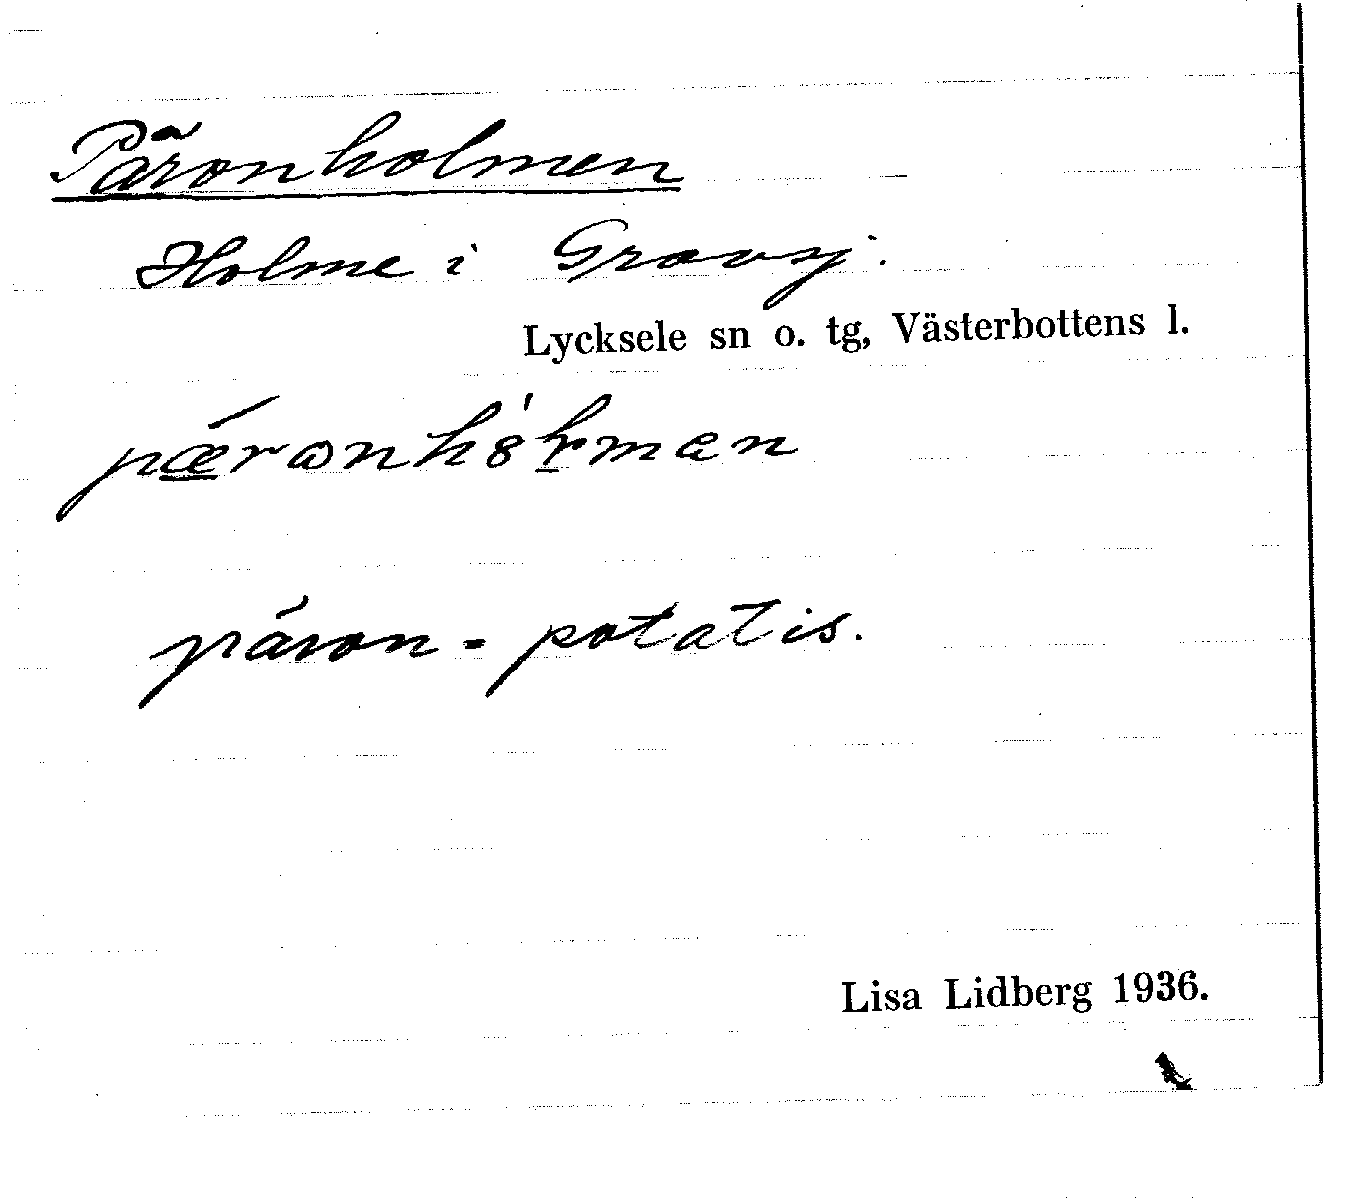 Päronholmen
Holme i Gravsj.
Lycksele sn o. tg, Västerbottens l.
päron - potatis.
Lisa Lidberg 1936.